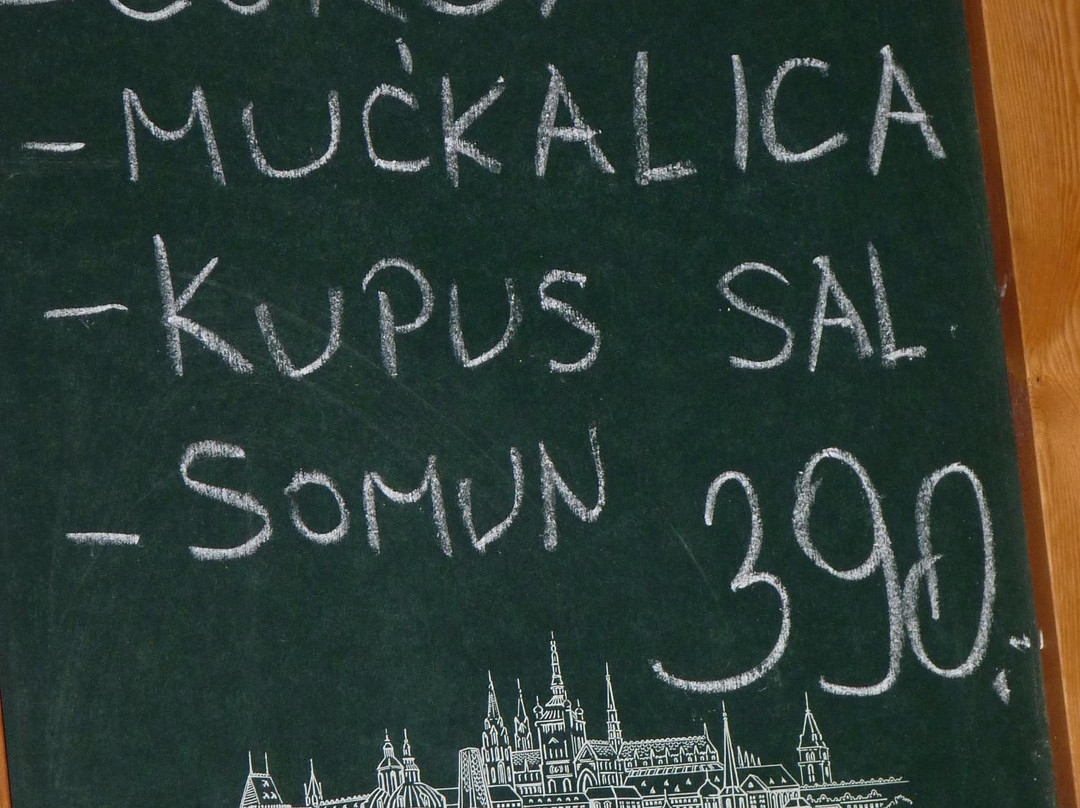 - MUĆKALICA
- KUPUS SAL
- SOMUN 390.